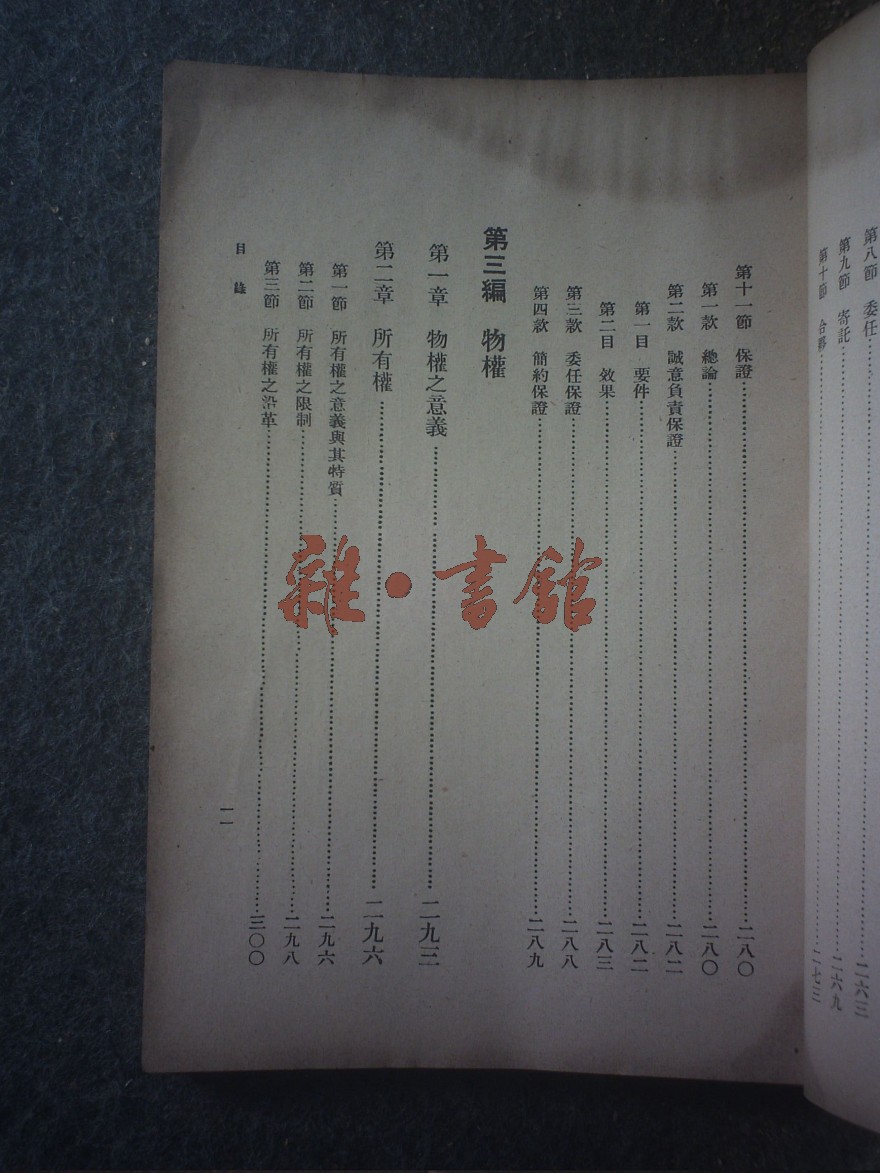 第八節 委任……二六三
第九節 寄託……二六九
第十節 合夥……二七三
第十一節 保證……二八〇
第一款 總論……二八〇
第二款 誠意負責保證……二八二
第一目 要件……二八二
第二目 效果……二八三
第三款 委任保證……二八八
第四款 簡約保證……二八九
第三編 物權
第一章 物權之意義……二九三
第二章 所有權……二九六
第一節 所有權之意義與其特質……二九六
第二節 所有權之限制……二九八
第三節 所有權之沿革……三〇〇
目錄
一一
雜·書館